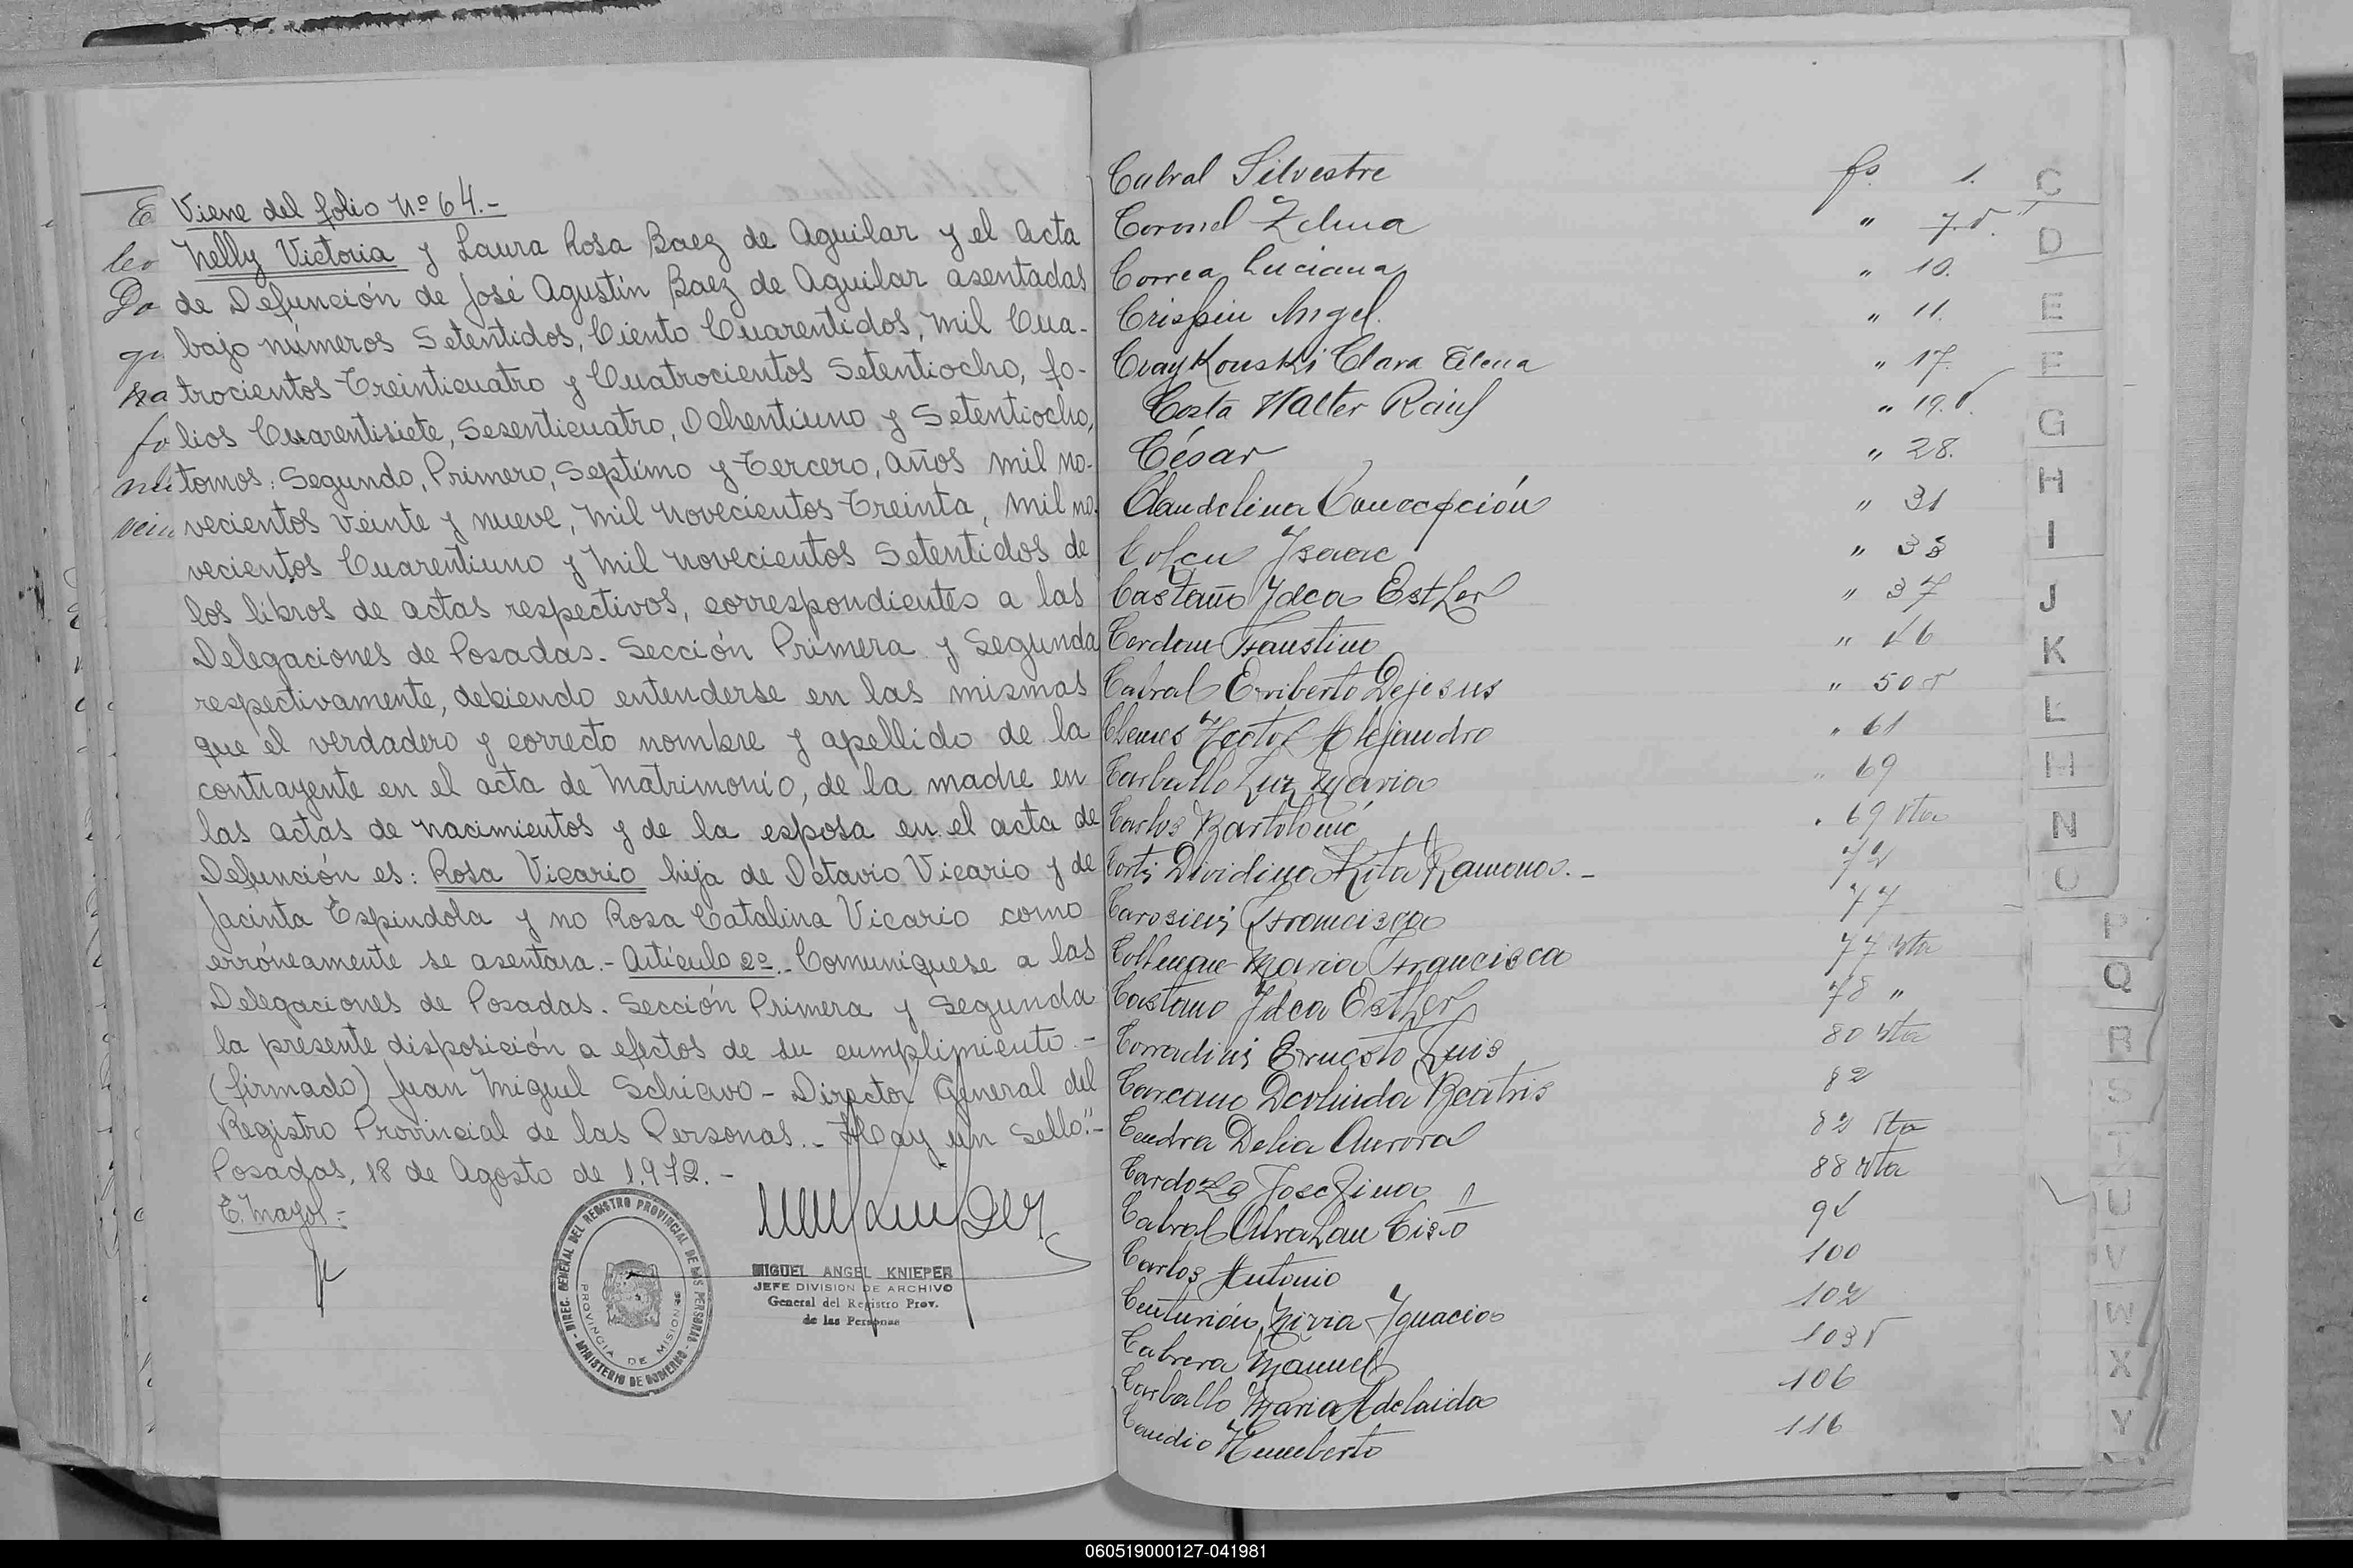 Viene del folio Nº 64.-
Nelly Victoria y Laura Rosa Baez de Aguilar y el acta
de Defunción de José Agustín Baez de Aguilar asentadas
bajo números Setentidos, Ciento Cuarentidos, Mil Cua-
trocientos Treinticuatro y Cuatrocientos Setentiocho, fo-
lios Cuarentisiete, Sesenticuatro, Ochentiuno y Setentiocho,
tomos: Segundo, Primero, Septimo y Tercero, años mil no-
vecientos veinte y nueve, mil novecientos Treinta, mil no-
vecientos Cuarentiuno y Mil novecientos Setentidos de
los libros de actas respectivos, correspondientes a las
Delegaciones de Posadas. Sección Primera y Segunda
respectivamente, debiendo entenderse en las mismas
que el verdadero y correcto nombre y apellido de la
contrayente en el acta de Matrimonio, de la madre en
las actas de nacimientos y de la esposa en el acta de
Defunción es: Rosa Vicario hija de Octavio Vicario y de
Jacinta Espindola y no Rosa Catalina Vicario como
erróneamente se asentara.- Artículo 2º.- Comuníquese a las
Delegaciones de Posadas. Sección Primera y Segunda
la presente disposición a efectos de su cumplimiento.-
(firmado) Juan Miguel Schiavo - Director General del
Registro Provincial de las Personas.- Hay un Sello".-
Posadas, 18 de Agosto de 1.972.-
E. Mayol.-
DIREC. GENERAL DEL REGISTRO PROVINCIAL DE LAS PERSONAS - MINISTERIO DE GOBIERNO
PROVINCIA DE MISIONES
MIGUEL ANGEL KNIEPER
JEFE DIVISION DE ARCHIVO
General del Registro Prov.
de las Personas
Cabral Silvestre fs. 1.
Coronel Zelma " 7.v.
Correa Luciana " 10.
Crispin Angel. " 11.
Craykouski Clara Elena " 17.
Costa Walter Raúl " 19.v.
César " 28.
Claudelina Concepción " 31
Cohen Isaac " 33
Castaño Ydea Esther " 37
Cordau Faustino " 46
Cabral Eriberto Dejesus " 50 v
Clemes Hector Alejandro " 61
Carballo Luz Maria " 69
Carlos Bartolomé " 69 vta
Corti Dividina Rita Ramona.- 72
Carosini Francisca 77
Coltman Maria Francisca 77 vta
Castano Ydea Esther 78 "
Corradini Ernesto Luis 80 vta
Carcano Deolinda Beatris 82
Cendra Delia Aurora 82 vta
Cardozo Josefina 88 vta
Cabral Abrahan Ciso 94
Carlos Antonio 100
Centurión Nivia Ygnacia 102
Cabrera Manuel 103 v
Carballo Maria Adelaida 106
Candio Humberto 116
C
D
E
F
G
H
I
J
K
L
M
N
O
P
Q
R
S
T
U
V
W
X
Y
060519000127-041981